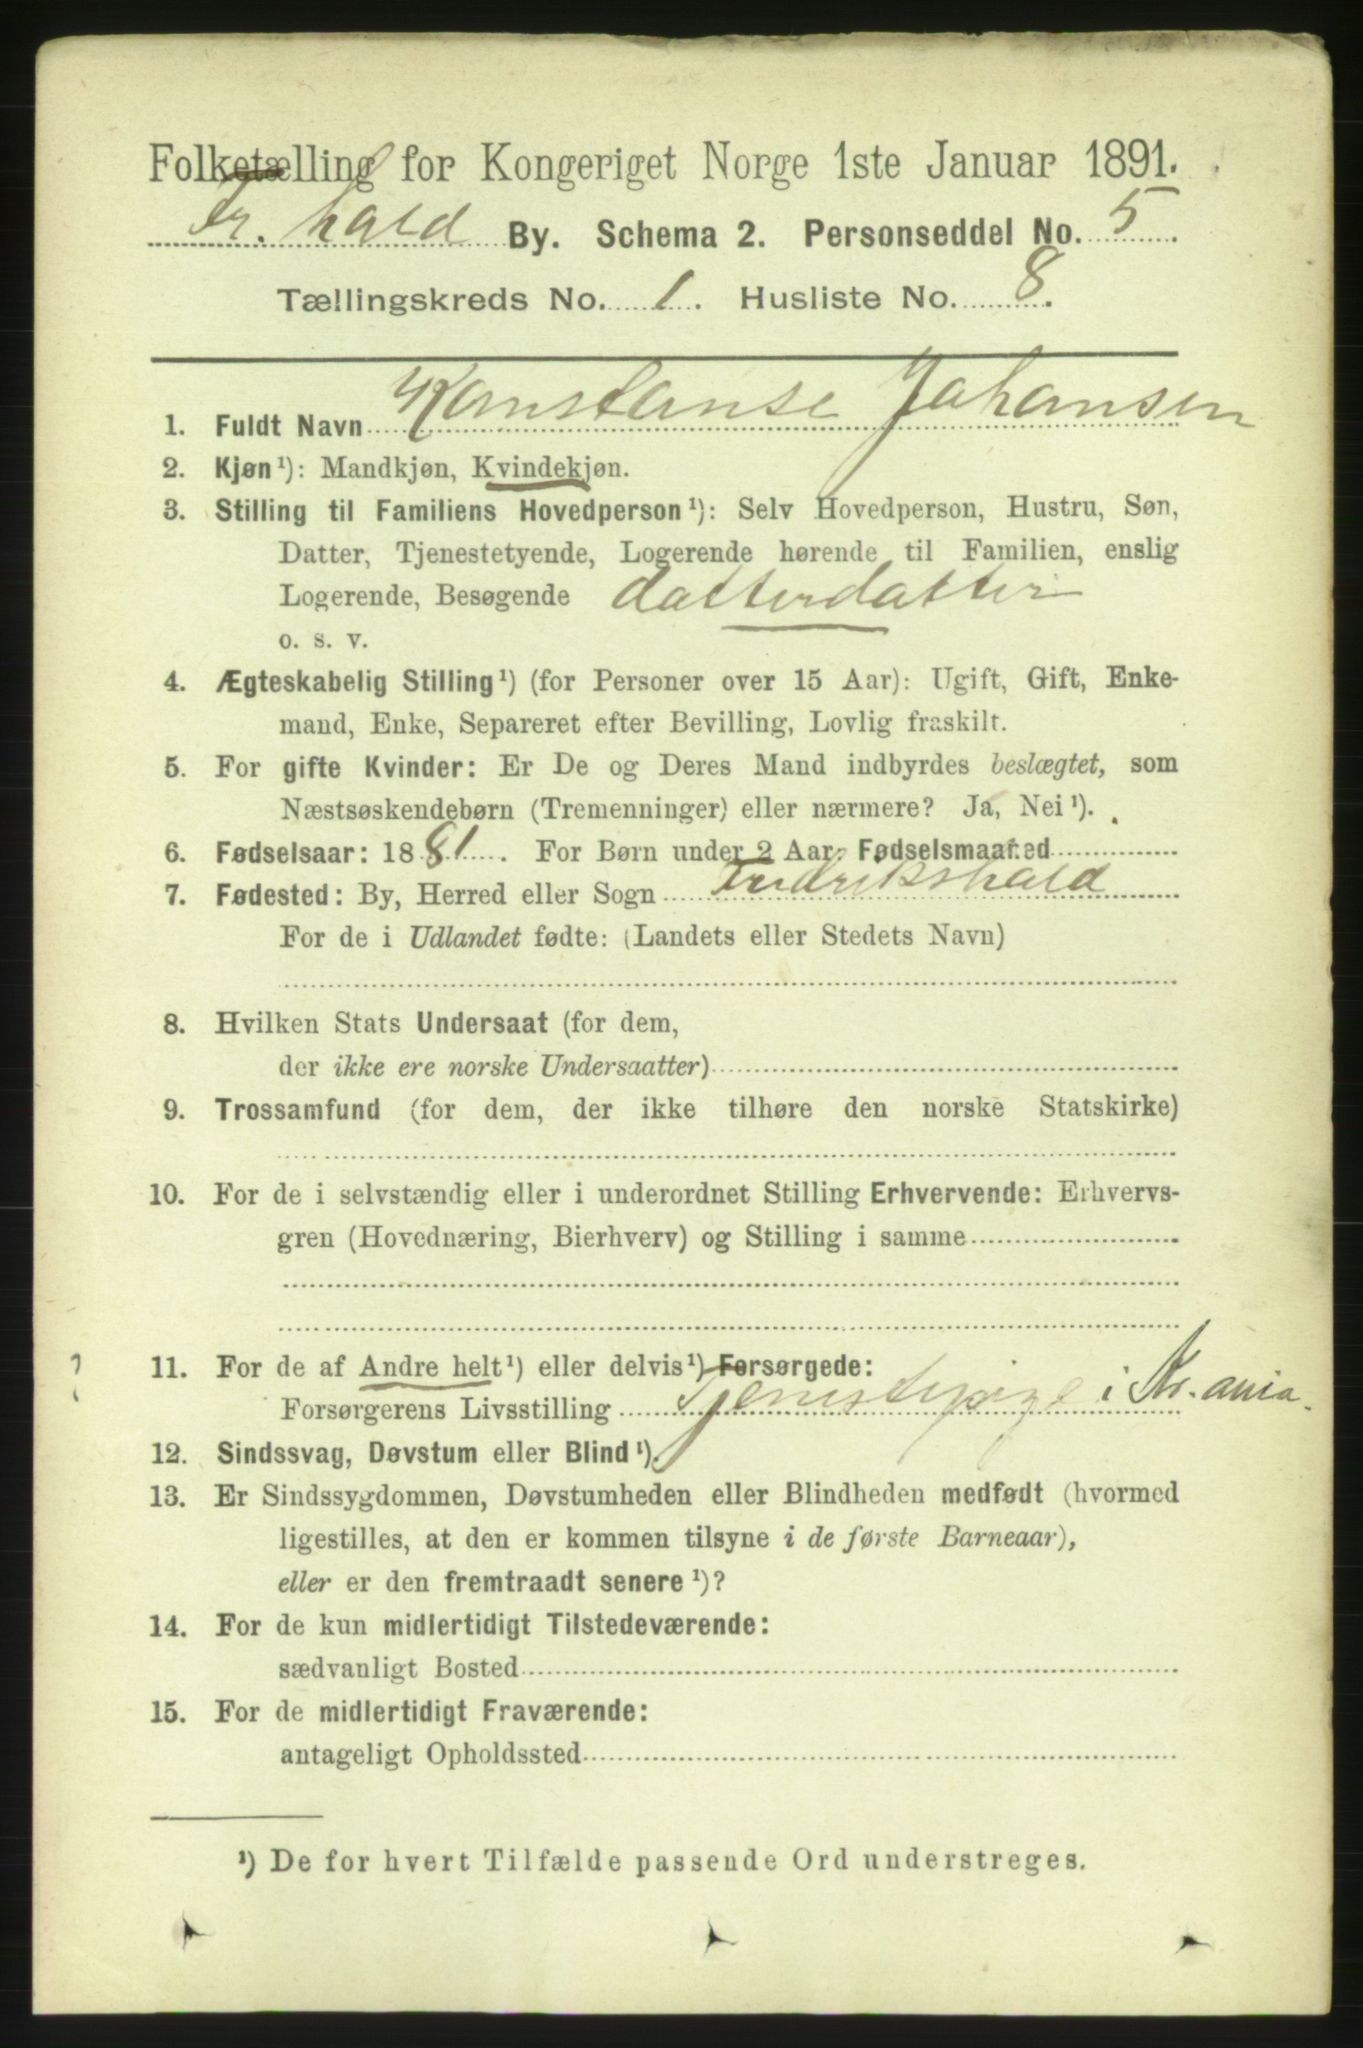 Folketælling for Kongeriget Norge 1ste Januar 1891.
Fr. hald By. Schema 2. Personseddel No. 5
Tællingskreds No. 1. Husliste No. 8.
1. Fuldt Navn Konstanse Johansen
2. Kjøn¹): Mandkjøn, Kvindekjøn.
3. Stilling til Familiens Hovedperson¹): Selv Hovedperson, Hustru, Søn,
Datter, Tjenestetyende, Logerende hørende til Familien, enslig
Logerende, Besøgende datterdatter
o. s. v.
4. Ægteskabelig Stilling¹) (for Personer over 15 Aar): Ugift, Gift, Enke-
mand, Enke, Separeret efter Bevilling, Lovlig fraskilt.
5. For gifte Kvinder: Er De og Deres Mand indbyrdes beslægtet, som
Næstsøskendebørn (Tremenninger) eller nærmere? Ja, Nei¹).
6. Fødselsaar: 1881. For Børn under 2 Aar: Fødselsmaaned
7. Fødested: By, Herred eller Sogn Fredrikshald
For de i Udlandet fødte: (Landets eller Stedets Navn)
8. Hvilken Stats Undersaat (for dem,
der ikke ere norske Undersaatter)
9. Trossamfund (for dem, der ikke tilhøre den norske Statskirke)
10. For de i selvstændig eller i underordnet Stilling Erhvervende: Erhvervs-
gren (Hovednæring, Bierhverv) og Stilling i samme
11. For de af Andre helt¹) eller delvis¹) Forsørgede:
Forsørgerens Livsstilling Tjenestepige i Kr.ania.
12. Sindssvag, Døvstum eller Blind¹).
13. Er Sindssygdommen, Døvstumheden eller Blindheden medfødt (hvormed
ligestilles, at den er kommen tilsyne i de første Barneaar),
eller er den fremtraadt senere¹)?
14. For de kun midlertidigt Tilstedeværende:
sædvanligt Bosted
15. For de midlertidigt Fraværende:
antageligt Opholdssted
¹) De for hvert Tilfælde passende Ord understreges.